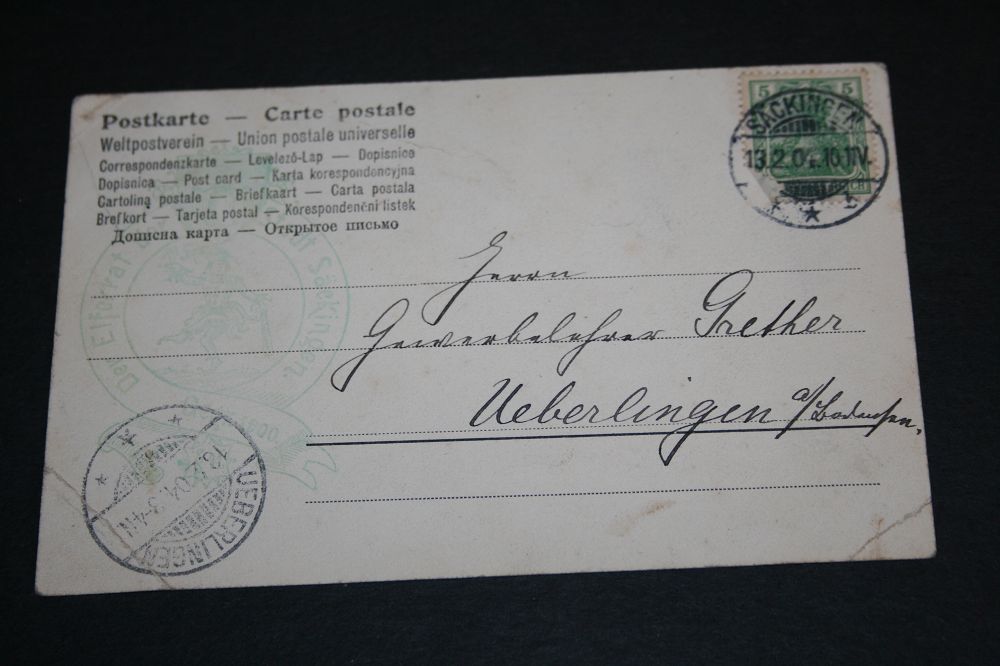 Postkarte — Carte postale
Weltpostverein — Union postale universelle
Correspondenzkarte — Levelező-Lap — Dopisnice
Dopisnica — Post card — Karta korespondencyjna
Cartolina postale — Briefkaart — Carta postala
Brefkort — Tarjeta postal — Korespondenční listek
Дописна карта — Открытое письмо
5 5
SÄCKINGEN
13.2.04. 10.11V.
b
Herrn
Gewerbelehrer Grether
Ueberlingen a/Bodensee.
Der Elferrat Säckingen.
UEBERLINGEN
13.2.04. 3-4N